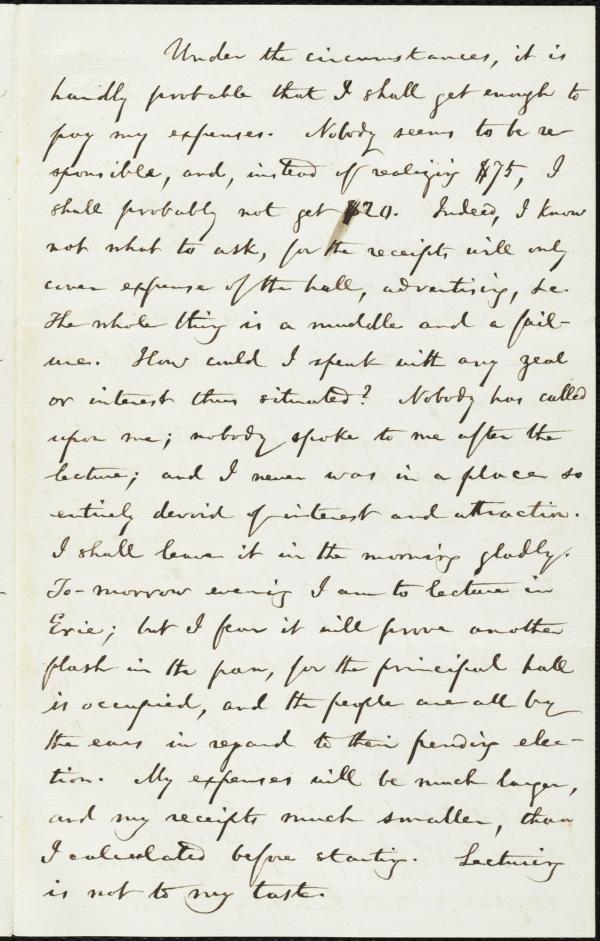 Under the circumstances, it is
hardly probable that I shall get enough to
pay my expenses. Nobody seems to be re-
sponsible, and, instead of realizing $75, I
shall probably not get $20. Indeed, I know
not what to ask, for the receipts will only
cover expense of the hall, advertising, &c.
The whole thing is a muddle and a fail-
ure. How could I speak with any zeal
or interest thus situated? Nobody has called
upon me; nobody spoke to me after the
lecture; and I never was in a place so
entirely devoid of interest and attraction.
I shall leave it in the morning gladly.
To-morrow evening I am to lecture in
Erie; but I fear it will prove another
flash in the pan, for the principal hall
is occupied, and the people are all by
the ears in regard to their pending elec-
tion. My expenses will be much larger,
and my receipts much smaller, than
I calculated before starting. Lecturing
is not to my taste.